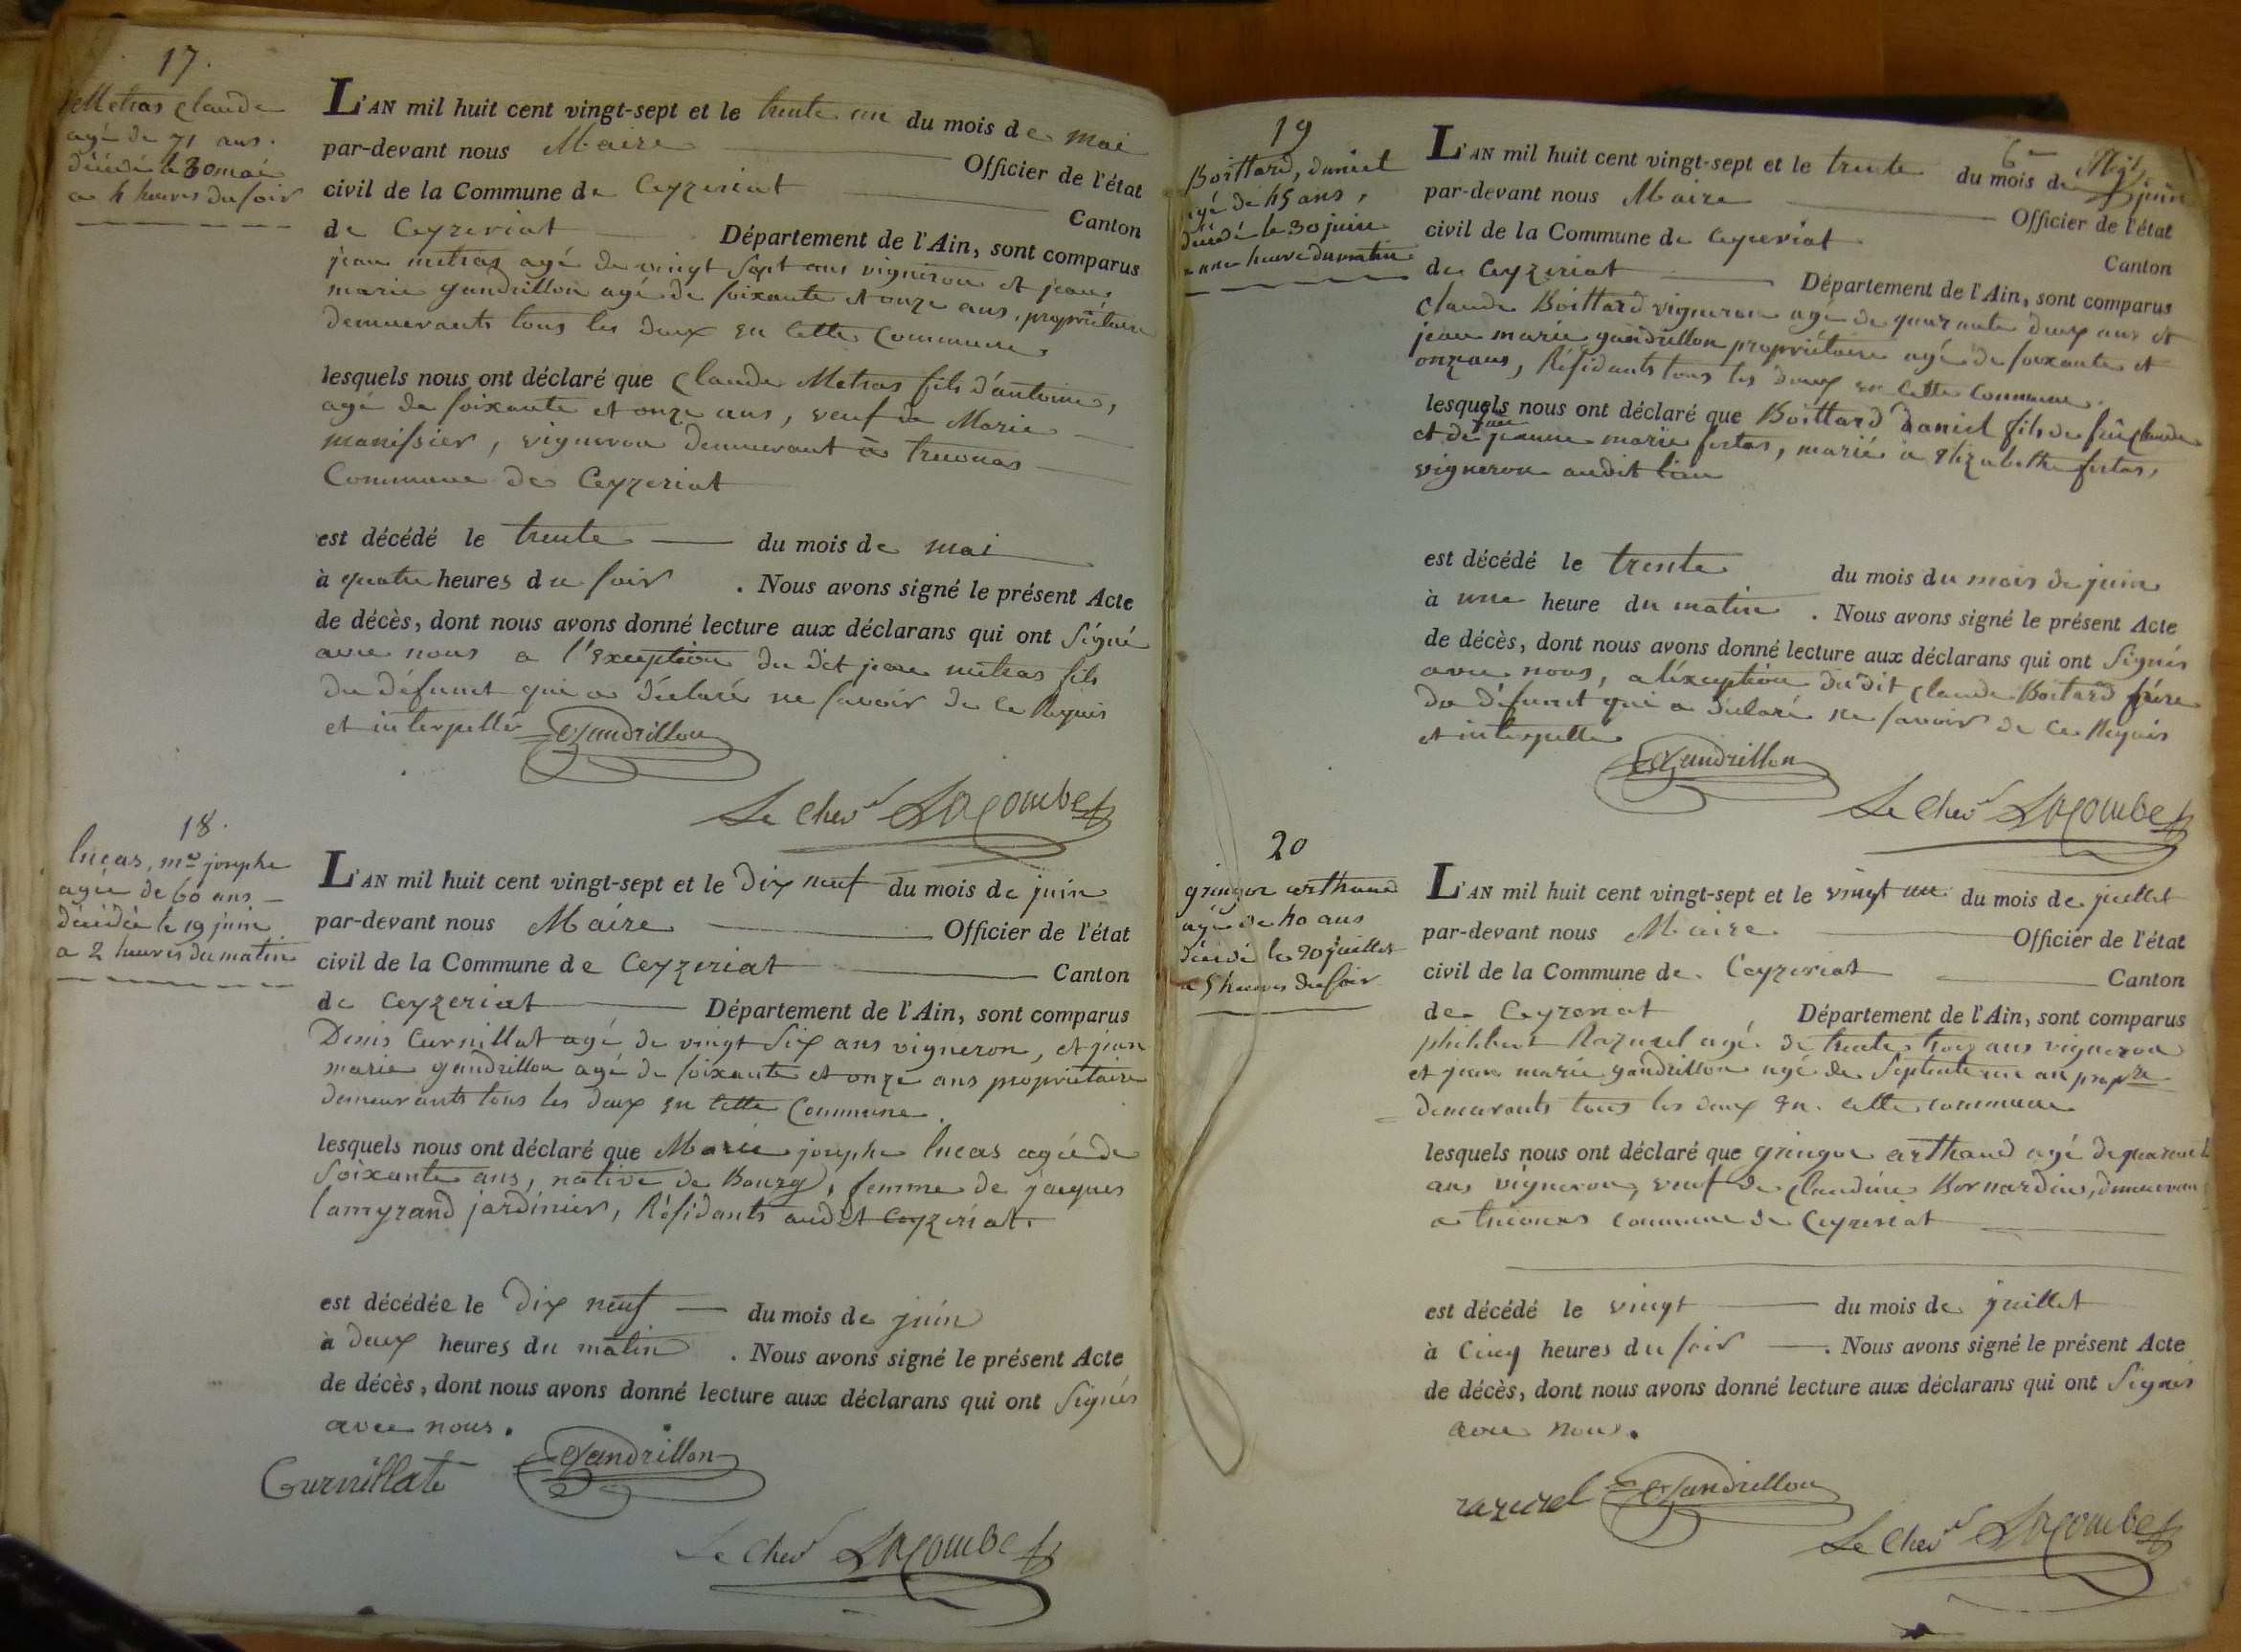 17.
Metras Claude
agé de 71 ans.
décédé le 30 mai
a 4 heures du soir
L'AN mil huit cent vingt-sept et le trente un du mois de mai
par-devant nous Maire Officier de l'état
civil de la Commune de Ceyzeriat Canton
de Ceyzeriat Département de l'Ain, sont comparus
jean metras agé de vingt sept ans vigneron et jean
marie gandrillon agé de soixante et onze ans, propriétaire
demeurants tous les deux en cette Commune
lesquels nous ont déclaré que Claude Metras fils d'antoine,
agé de soixante et onze ans, veuf de Marie
manissier, vigneron demeurant à treconas
Commune de Ceyzeriat
est décédé le trente du mois de mai
à quatre heures du soir . Nous avons signé le présent Acte
de décès, dont nous avons donné lecture aux déclarans qui ont signé
avec nous a l'exception du dit jean metras fils
du défunt qui a déclaré ne savoir de ce Requis
et interpellé Gandrillon
Le Chev.r Lacombe
18.
lucas, m.ie josephe
agée de 60 ans
décédée le 19 juin
a 2 heures du matin
L'AN mil huit cent vingt-sept et le dix neuf du mois de juin
par-devant nous Maire Officier de l'état
civil de la Commune de Ceyzeriat Canton
de Ceyzeriat Département de l'Ain, sont comparus
Denis Curnillat agé de vingt six ans vigneron, et jean
marie gandrillon agé de soixante et onze ans propriétaire
demeurants tous les deux en cette Commune.
lesquels nous ont déclaré que Marie josephe lucas agée de
soixante ans, native de Bourg, femme de jacques
lamyrand jardinier, Résidants audit Ceyzeriat.
est décédée le dix neuf du mois de juin
à deux heures du matin . Nous avons signé le présent Acte
de décès, dont nous avons donné lecture aux déclarans qui ont signés
avec nous.
Curnillate Gandrillon
Le Chev.r Lacombe
19
Boittard, daniel
agé de 45 ans,
décédé le 30 juin
a une heure du matin
L'AN mil huit cent vingt-sept et le trente du mois de juin
par-devant nous Maire Officier de l'état
civil de la Commune de Ceyzeriat Canton
de Ceyzeriat Département de l'Ain, sont comparus
Claude Boittard vigneron agé de quarante deux ans et
jean marie gandrillon propriétaire agé de soixante et
onze ans, Résidants tous les deux en cette Commune.
lesquels nous ont déclaré que Boittard Daniel fils de feu Claude
et de feue jeanne marie fertas, marié a Elizabethe fertas,
vigneron audit lieu
est décédé le trente du mois du mois de juin
à une heure du matin . Nous avons signé le présent Acte
de décès, dont nous avons donné lecture aux déclarans qui ont signés
avec nous, a l'exception du dit Claude Boitard frère
du défunt qui a déclaré ne savoir de ce Requis
et interpellé
Gandrillon
Le Chev.r Lacombe
20
gringoe arthaud
agé de 40 ans
décédé le 20 juillet
a 5 heures du soir
L'AN mil huit cent vingt-sept et le vingt un du mois de juillet
par-devant nous Maire Officier de l'état
civil de la Commune de Ceyzeriat Canton
de Ceyzeriat Département de l'Ain, sont comparus
philibert Razurel agé de trente trois ans vigneron
et jean marie gandrillon agé de septente un an prop.re
demeurants tous les deux en cette commune
lesquels nous ont déclaré que gringoe arthaud agé de quarente
ans vigneron, veuf de Claudine Bornardin, demeurant
a treconas commune de Ceyzeriat
est décédé le vingt du mois de juillet
à cinq heures du soir . Nous avons signé le présent Acte
de décès, dont nous avons donné lecture aux déclarans qui ont signés
avec nous.
razurel Gandrillon
Le Chev.r Lacombe